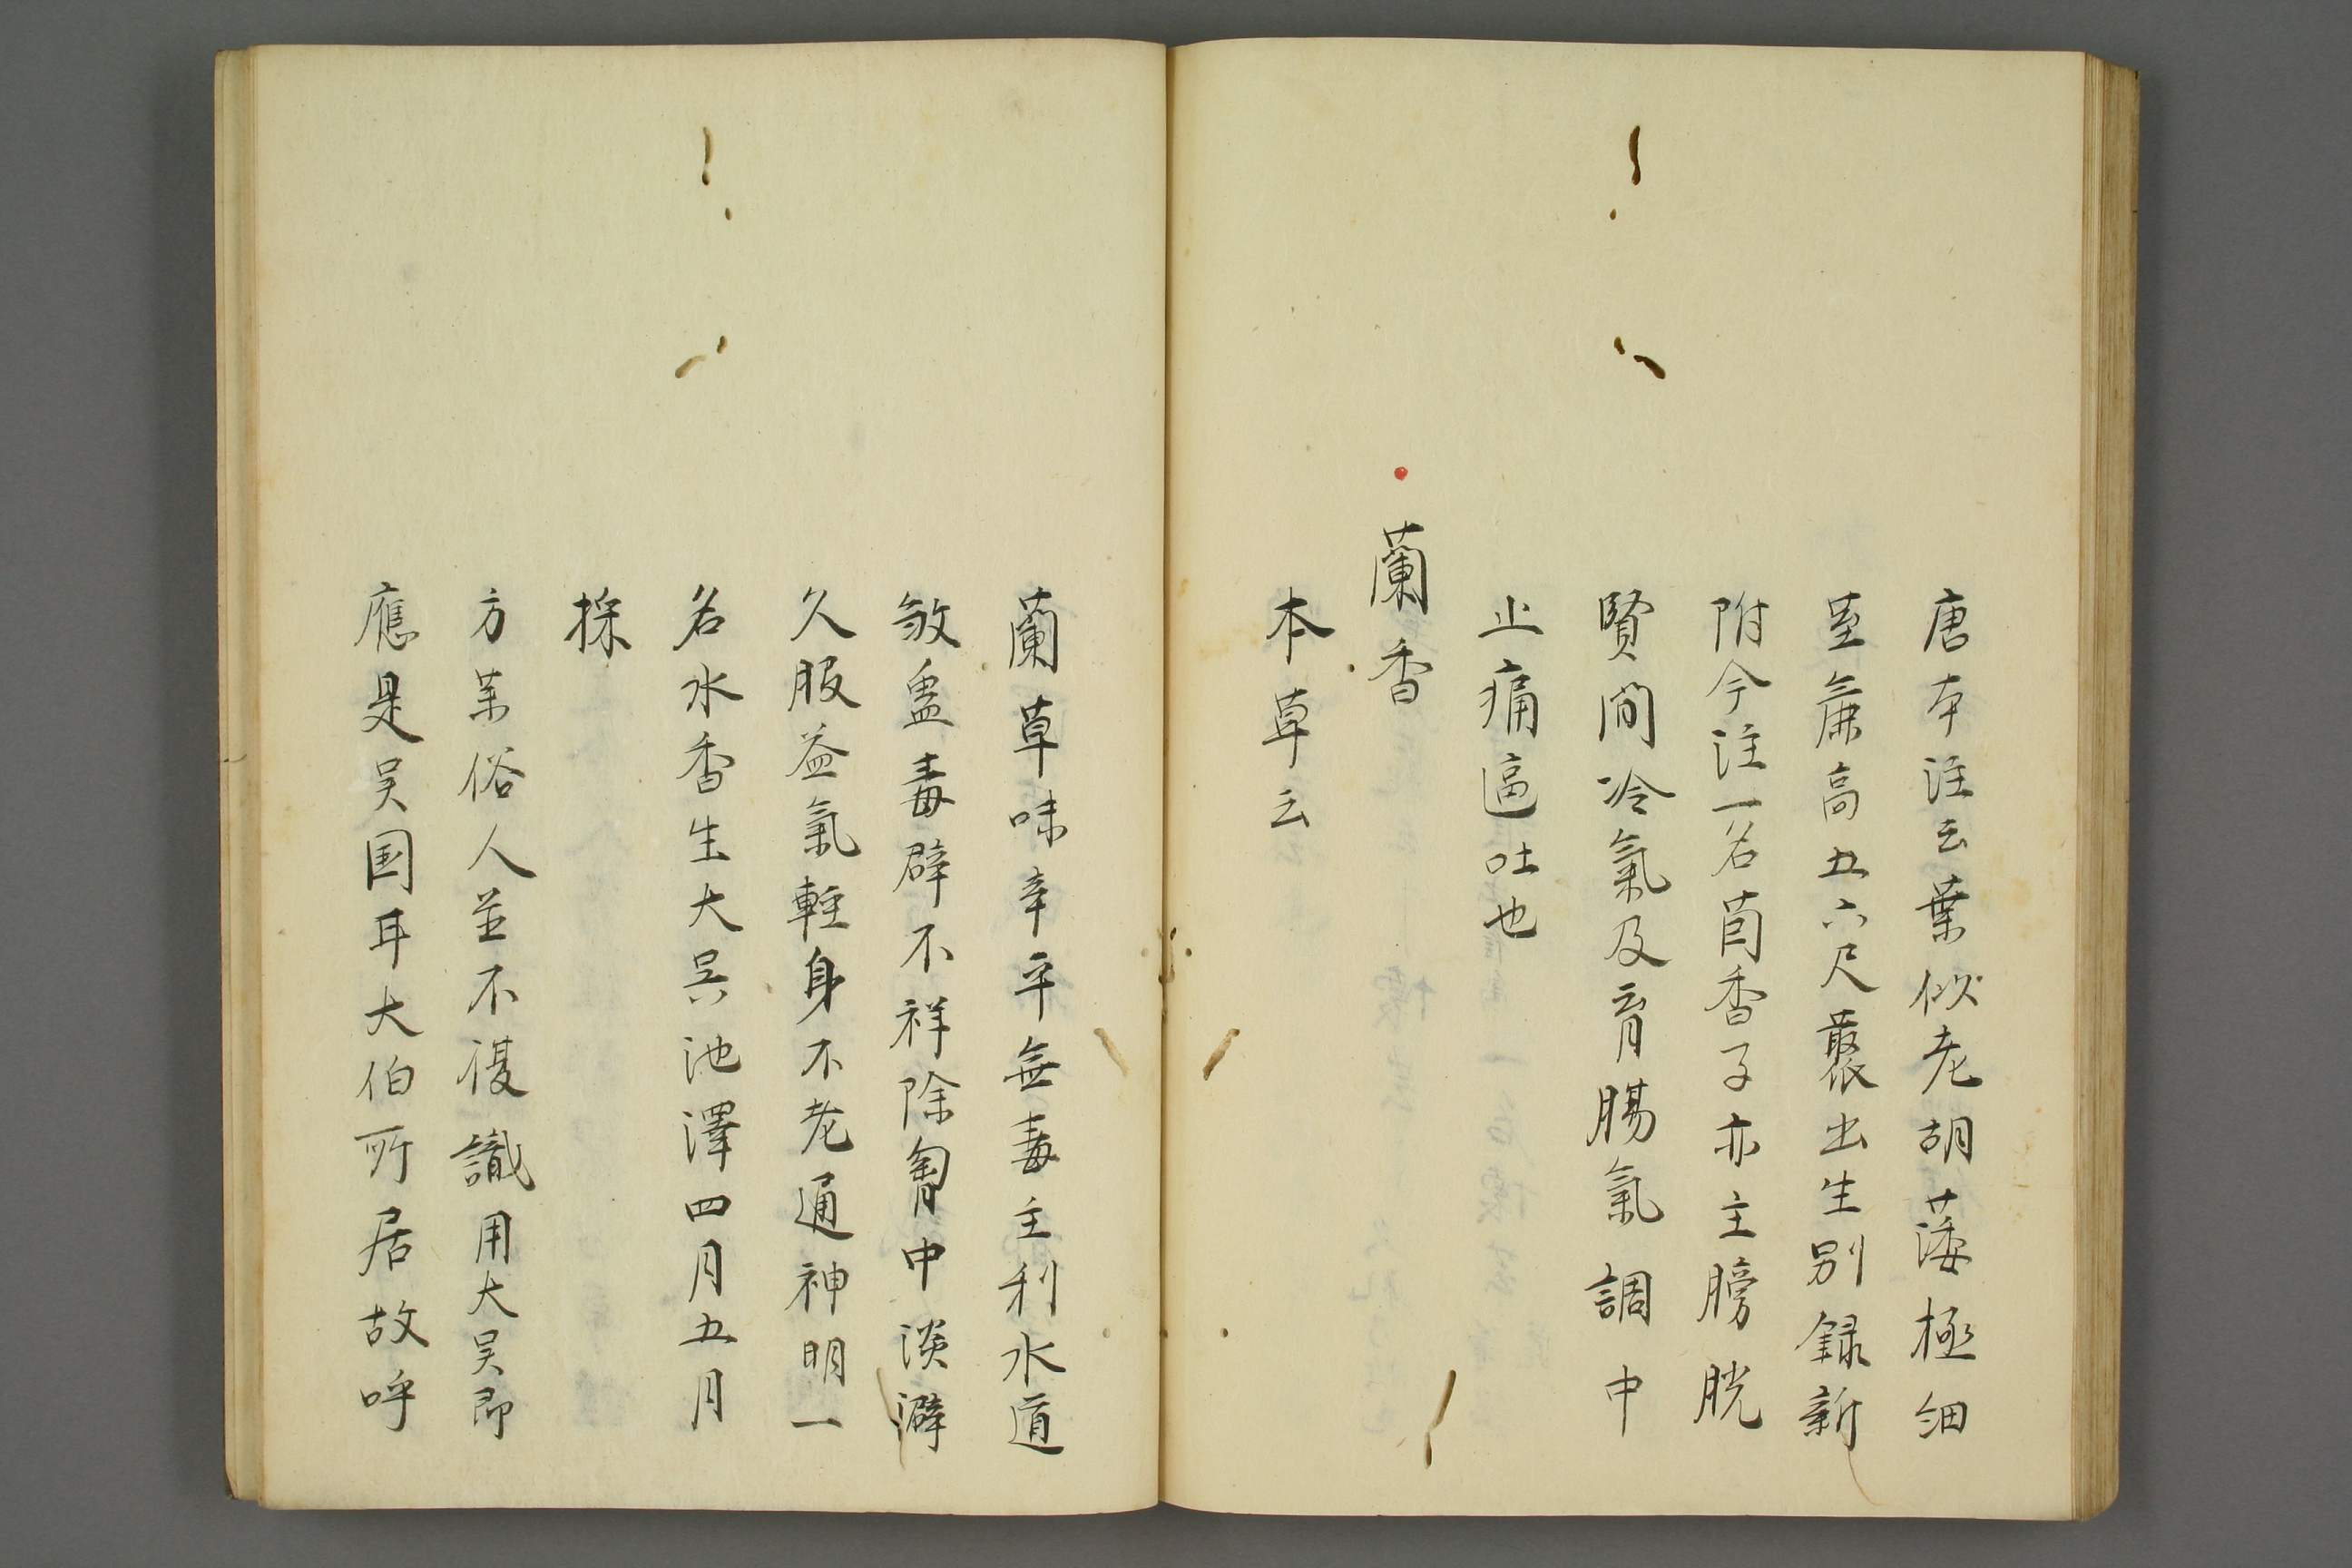 唐本注云葉似老胡荽極細
莖麁高五六尺叢出生別録新
附今注一名茴香子亦主膀胱
賢間冷氣及育膓氣調中
止痛逼吐也
蘭香
本草云
蘭草味辛平無毒主利水道
敘蛊毒辟不祥除胷中淡澼
久服益氣輕身不老通神明一
名水香生大吳池澤四月五月
採
方茱俗人並不復識用大吴即
應是吴国耳大伯所居故呼